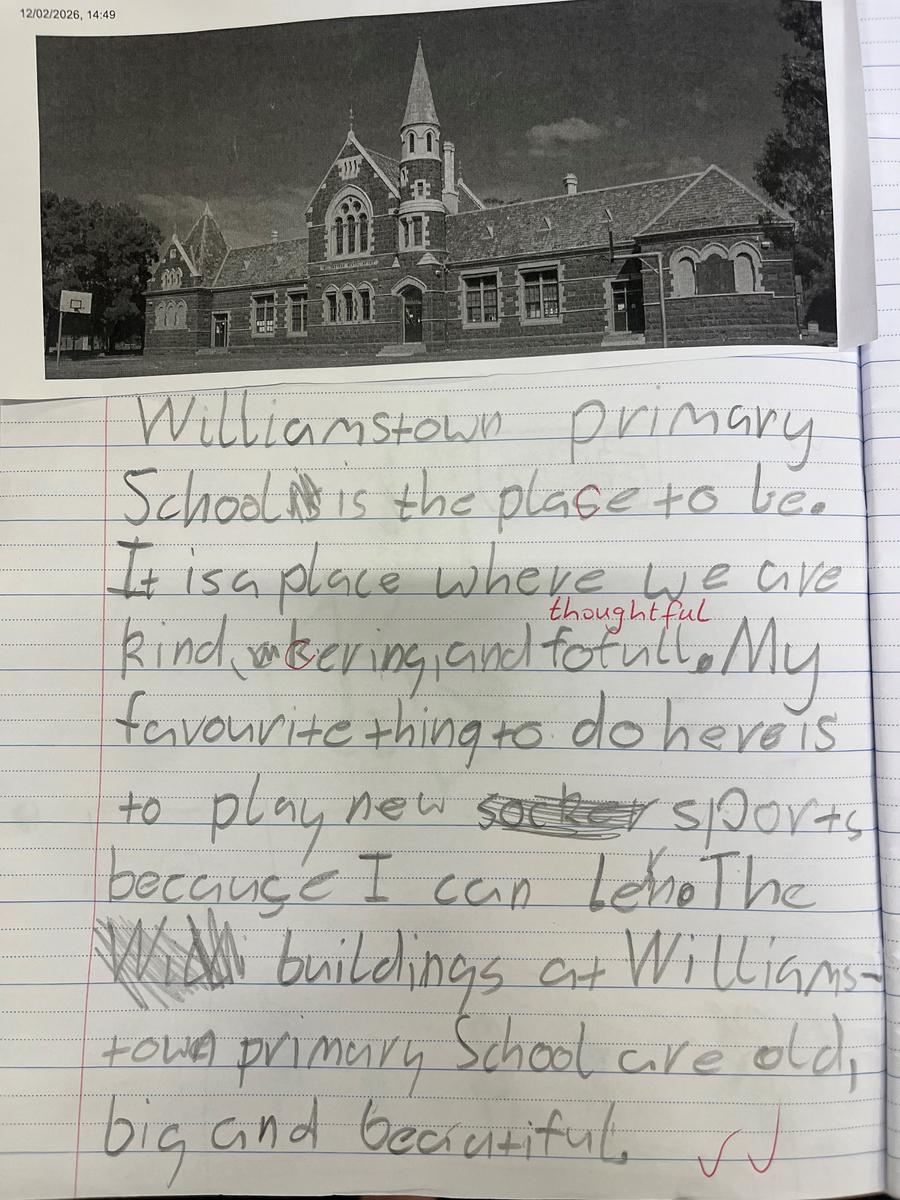 12/02/2026, 14:49
Williamstown primary
School is the place to be.
It is a place where we are
thoughtful
kind, cering, and fotull. My
favourite thing to do here is
to play new socker sports
because I can lern. The
buildings at Williams-
town primary School are old,
big and beautiful.